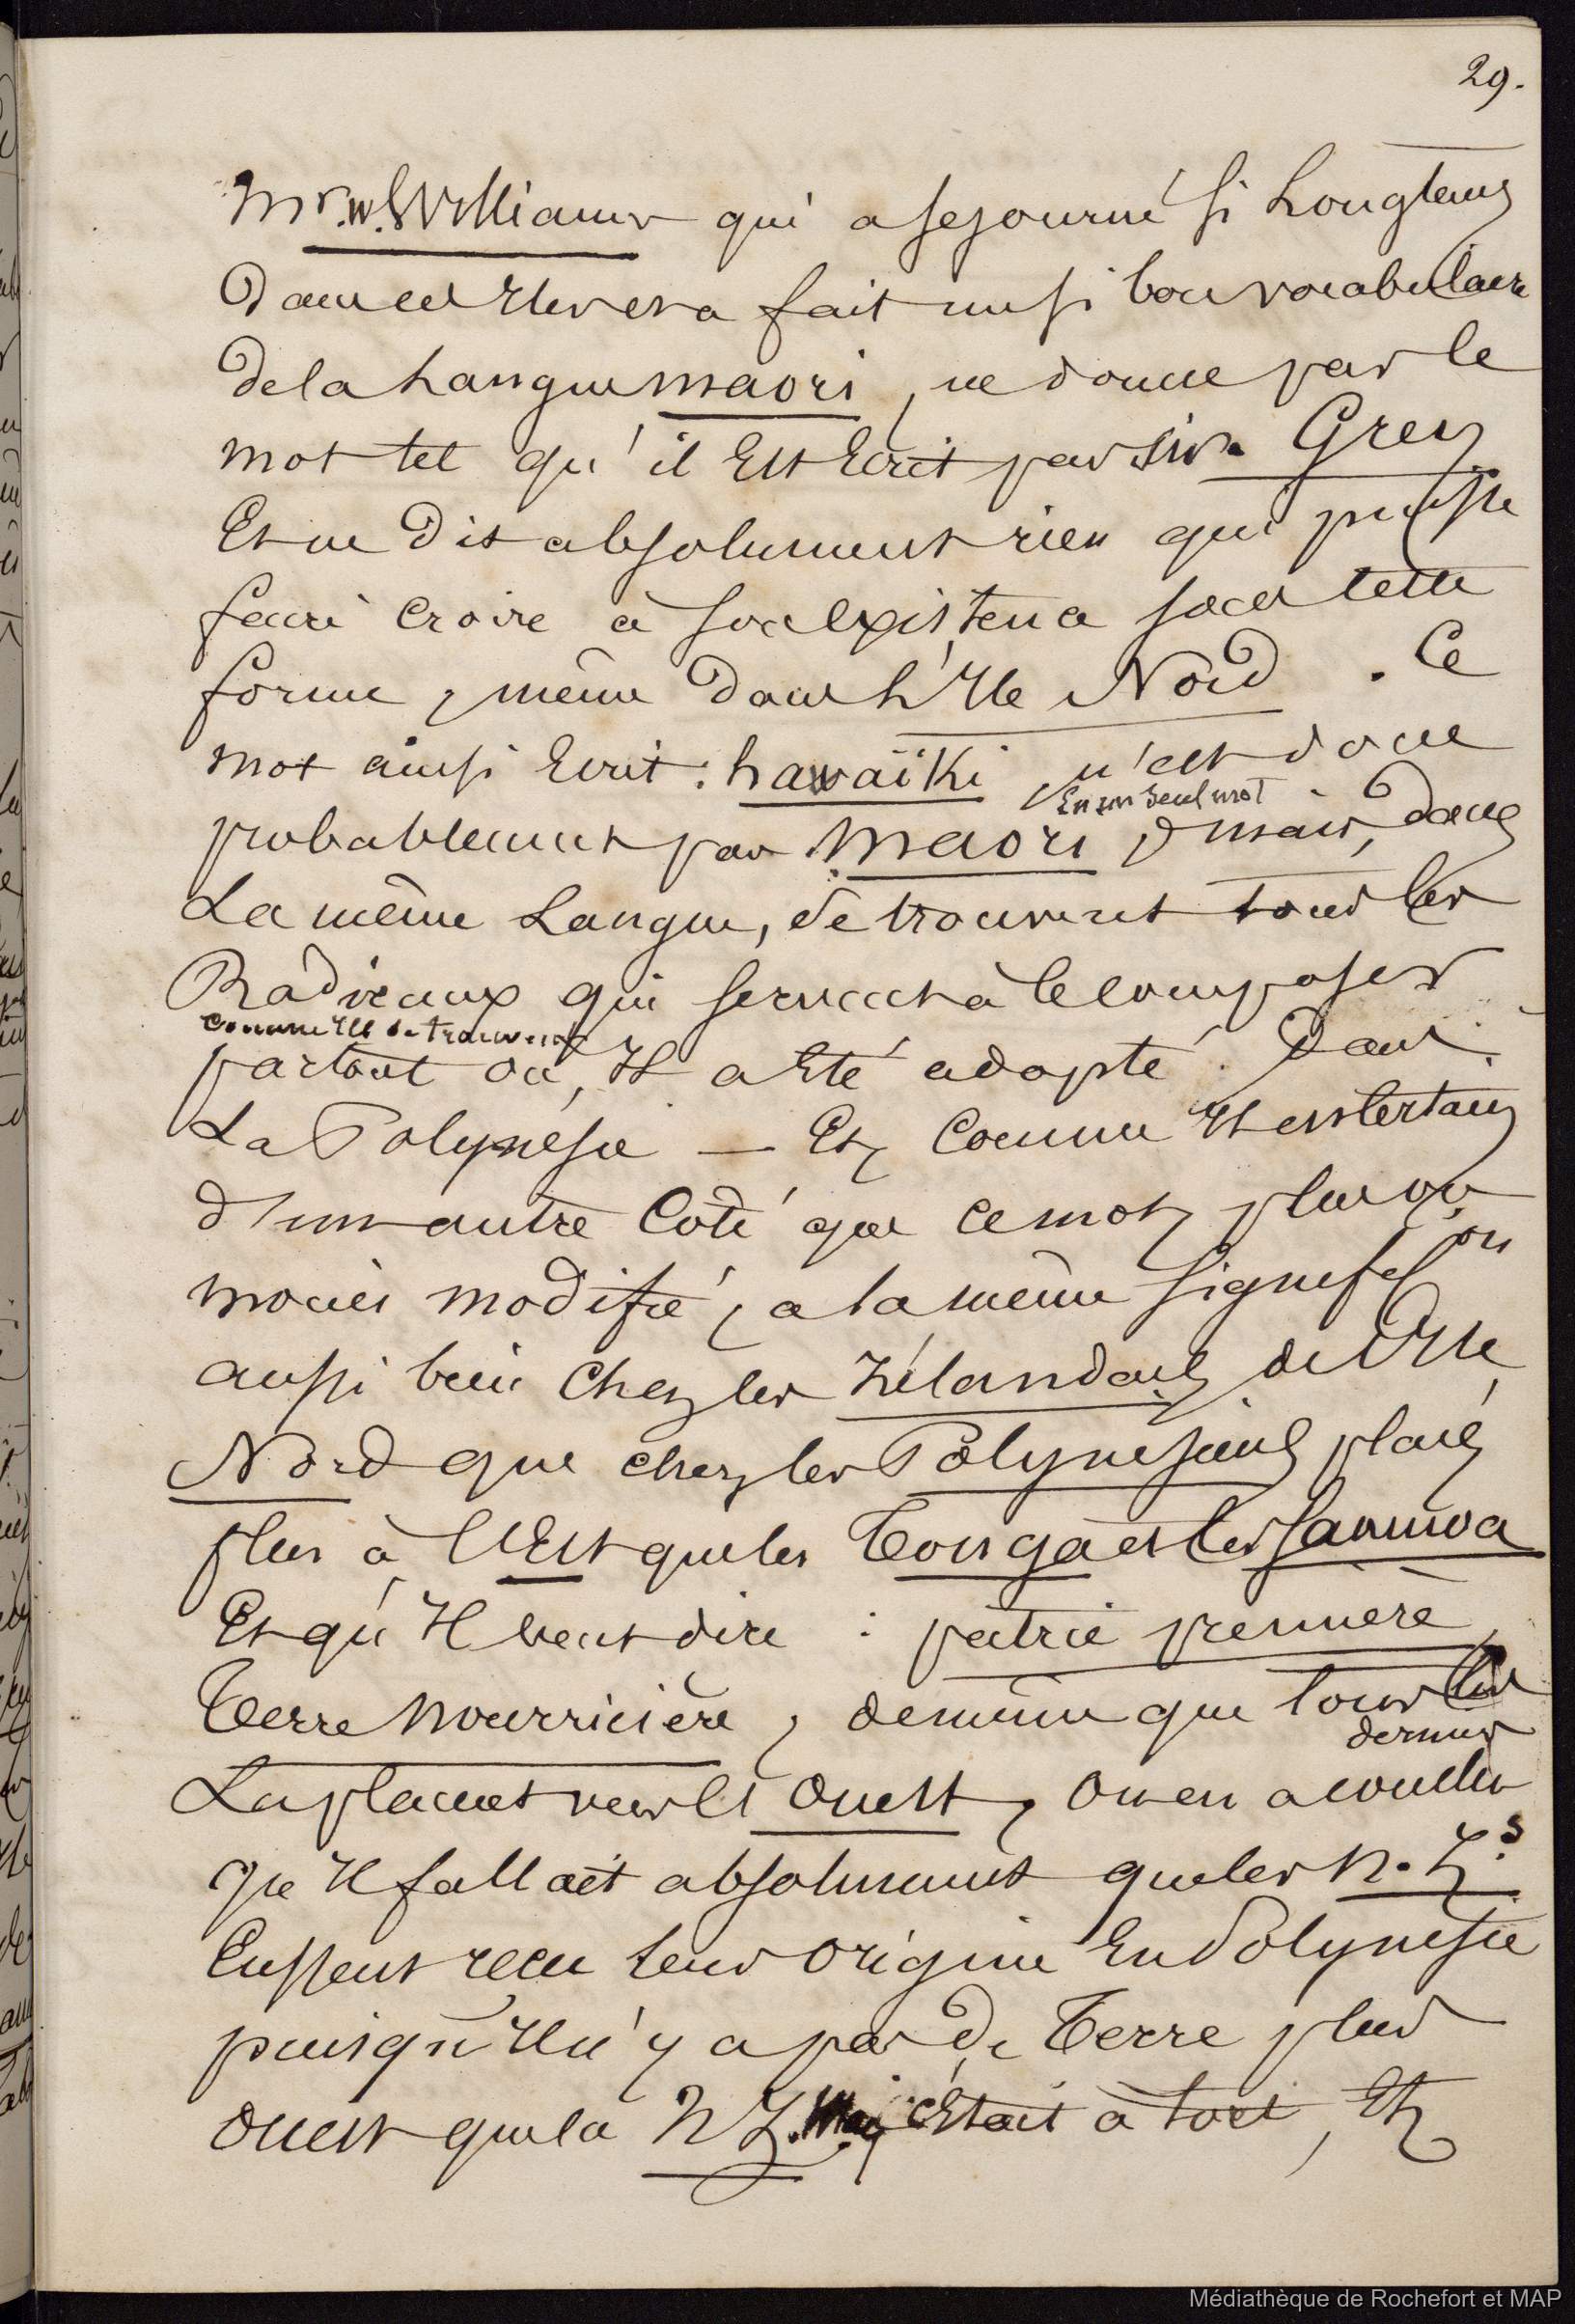 29.
Mr. W. Williams qui a sejourné si Longtems
Dans ces Iles et a fait un si bon vocabulaire
De la Langue maori, ne donne pas le
mot tel qu'il Est Ecrit par Sir. Grey
Et ne Dit absolument rien qui puisse
faire croire à son existence sous cette
forme, même Dans L'Ile Nord. Ce
mot ainsi Ecrit : hawaïki n'est donc
En un seul mot
probablement pas maori ; mais, dans
La même Langue, se trouvent tous les
Radicaux qui servent à le composer
comme Ils se trouvent
partout où, Il a Eté adopté. Dans
La Polynésie — Et, Comme Il est certain
d'un autre Coté que ce mot, plus ou
moins modifié, a la même signifon
aussi bien Chez les Zélandais de l'Ile
Nord que chez les Polynésiens placés
plus à l'Est que les Tonga et les Samoa
Et qu'Il veut dire : patrie première,
Terre Nourricière, de même que tous les
derniers
La placent vers l'Ouest, On en a conclu
que Il fallait absolument que les N. Z.s
Eussent recu leur origine En Polynésie
puisqu'Il n'y a pas De Terre plus
Ouest que la N Z. c'Etait à tort, Et,
Médiathèque de Rochefort et MAP